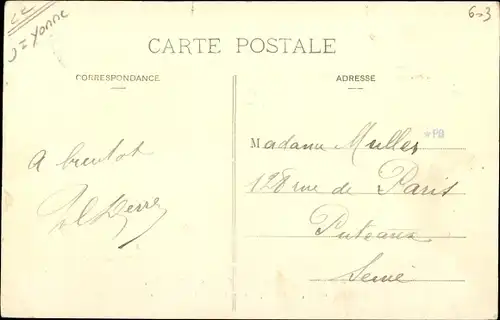 J = Yonne
6-3
CARTE POSTALE
CORRESPONDANCE
ADRESSE
A bientot
*PB
Madame Muller
128 rue de Paris
Puteaux
Seine